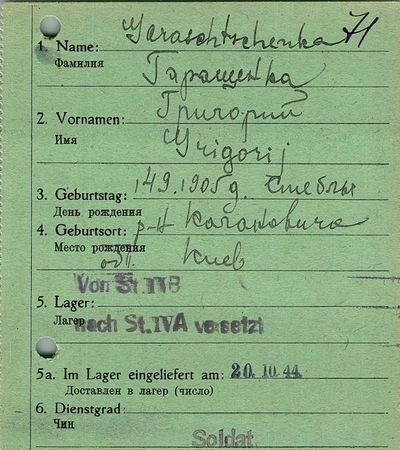 Garaschtschenka
1. Name:
Фамилия
Гаращенка
2. Vornamen: Григорий
Имя
Grigorij
3. Geburtstag: 14.9.1905 д. Стеблы
День рождения
4. Geburtsort: р-н Кагановича
Место рождения
обл. Киев
Von St.IVB
5. Lager:
Лагерь
nach St.IVA versetzt
5a. Im Lager eingeliefert am: 20.10.44
Доставлен в лагер (число)
6. Dienstgrad:
Чин
Soldat